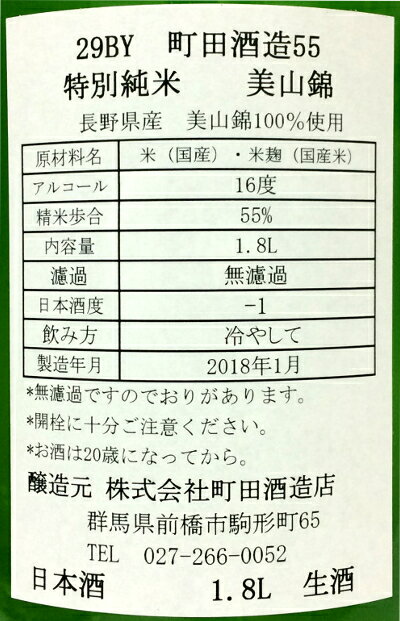 29BY 町田酒造55
特別純米 美山錦
長野県産 美山錦100%使用
原材料名 米（国産）・米麹（国産米）
アルコール 16度
精米歩合 55%
内容量 1.8L
濾過 無濾過
日本酒度 -1
飲み方 冷やして
製造年月 2018年1月
*無濾過ですのでおりがあります。
*開栓に十分ご注意ください。
*お酒は20歳になってから。
醸造元 株式会社町田酒造店
群馬県前橋市駒形町65
TEL 027-266-0052
日本酒 1.8L 生酒